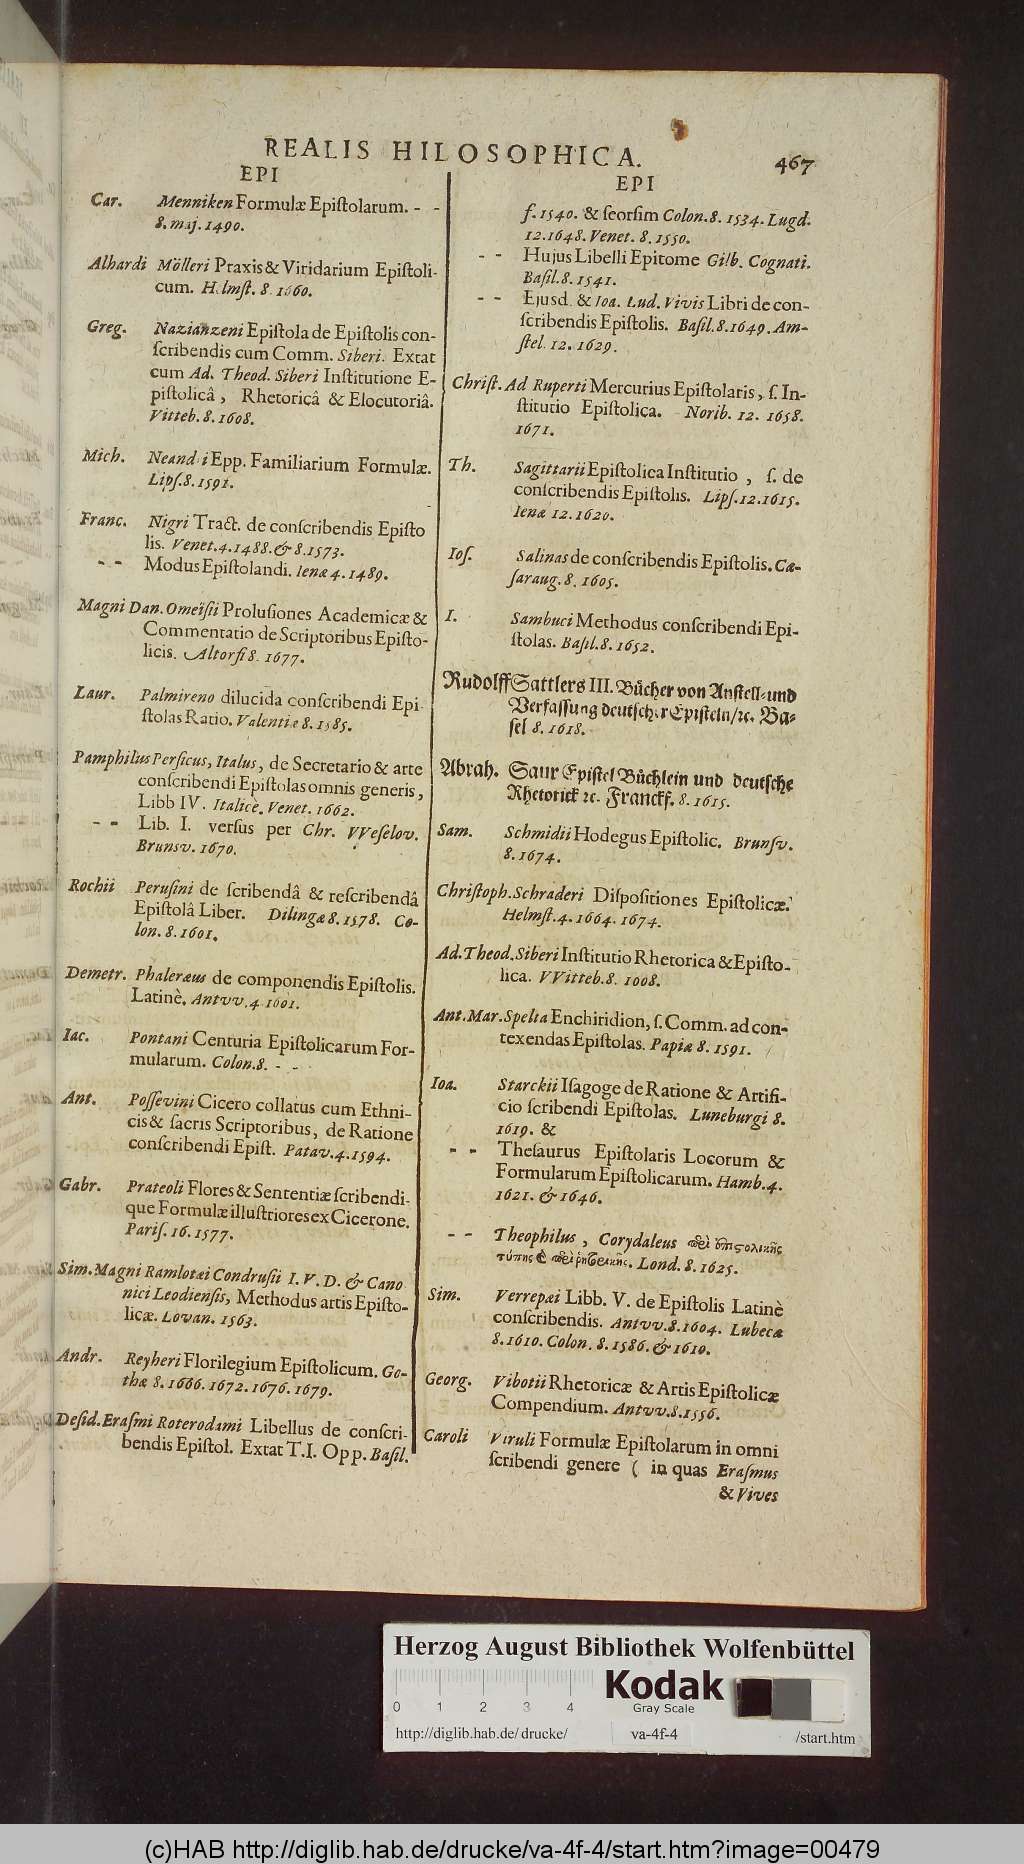 REALIS HILOSOPHICA. 467
EPI
Car. Menniken Formulæ Epiſtolarum. - -
8. maj. 1490.
Alhardi Mölleri Praxis & Viridarium Epiſtoli-
cum. Helmſt. 8. 1660.
Greg. Nazianzeni Epiſtola de Epiſtolis con-
ſcribendis cum Comm. Siberi. Extat
cum Ad. Theod. Siberi Inſtitutione E-
piſtolicâ, Rhetoricâ & Elocutoriâ.
Vitteb. 8. 1608.
Mich. Neandri Epp. Familiarium Formulæ.
Lipſ. 8. 1591.
Franc. Nigri Tract. de conſcribendis Epiſto
lis. Venet. 4. 1488. & 8. 1573.
- - Modus Epiſtolandi. Ienæ 4. 1489.
Magni Dan. Omeiſii Proluſiones Academicæ &
Commentatio de Scriptoribus Epiſto-
licis. Altorfi 8. 1677.
Laur. Palmireno dilucida conſcribendi Epi
ſtolas Ratio. Valentiæ 8. 1585.
Pamphilus Perſicus, Italus, de Secretario & arte
conſcribendi Epiſtolas omnis generis,
Libb IV. Italicè. Venet. 1662.
- - Lib. I. verſus per Chr. VVeſelov.
Brunsv. 1670.
Rochii Peruſini de ſcribendâ & reſcribendâ
Epiſtolâ Liber. Dilingæ 8. 1578. Co-
lon. 8. 1601.
Demetr. Phaleræus de componendis Epiſtolis.
Latinè. Antvv. 4 1601.
Iac. Pontani Centuria Epiſtolicarum For-
mularum. Colon. 8. - -
Ant. Poſſevini Cicero collatus cum Ethni-
cis & ſacris Scriptoribus, de Ratione
conſcribendi Epiſt. Patav. 4. 1594.
Gabr. Prateoli Flores & Sententiæ ſcribendi-
que Formulæ illuſtriores ex Cicerone.
Pariſ. 16. 1577.
Sim. Magni Ramlotæi Condruſii I. V. D. & Cano
nici Leodienſis, Methodus artis Epiſto-
licæ. Lovan. 1563.
Andr. Reyheri Florilegium Epiſtolicum. Go-
thæ 8. 1666. 1672. 1676. 1679.
Deſid. Eraſmi Roterodami Libellus de conſcri-
bendis Epiſtol. Extat T. I. Opp. Baſil.
EPI
f. 1540. & ſeorſim Colon. 8. 1534. Lugd.
12. 1648. Venet. 8. 1550.
- - Hujus Libelli Epitome Gilb. Cognati.
Baſil. 8. 1541.
- - Ejusd. & Ioa. Lud. Vivis Libri de con-
ſcribendis Epiſtolis. Baſil. 8. 1649. Am-
ſtel. 12. 1629.
Chriſt. Ad Ruperti Mercurius Epiſtolaris, ſ. In-
ſtitutio Epiſtolica. Norib. 12. 1658.
1671.
Th. Sagittarii Epiſtolica Inſtitutio, ſ. de
conſcribendis Epiſtolis. Lipſ. 12. 1615.
Ienæ 12. 1620.
Ioſ. Salinas de conſcribendis Epiſtolis. Cæ-
ſaraug. 8. 1605.
I. Sambuci Methodus conſcribendi Epi-
ſtolas. Baſil. 8. 1652.
Rudolff Sattlers III. Bücher von Anſtell-und
Verfaſſung deutſcher Epiſteln/ꝛc. Ba-
ſel 8. 1618.
Abrah. Saur Epiſtel Büchlein und deutſche
Rhetorick ꝛc. Franckf. 8. 1615.
Sam. Schmidii Hodegus Epiſtolic. Brunſv.
8. 1674.
Chriſtoph. Schraderi Diſpoſitiones Epiſtolicæ.
Helmſt. 4. 1664. 1674.
Ad. Theod. Siberi Inſtitutio Rhetorica & Epiſto-
lica. VVitteb. 8. 1008.
Ant. Mar. Spelta Enchiridion, ſ. Comm. ad con-
texendas Epiſtolas. Papiæ 8. 1591.
Ioa. Starckii Iſagoge de Ratione & Artifi-
cio ſcribendi Epiſtolas. Luneburgi 8.
1619. &
- - Theſaurus Epiſtolaris Locorum &
Formularum Epiſtolicarum. Hamb. 4.
1621. & 1646.
- - Theophilus, Corydaleus
Lond. 8. 1625.
Sim. Verrepæi Libb. V. de Epiſtolis Latinè
conſcribendis. Antvv. 8. 1604. Lubecæ
8. 1610. Colon. 8. 1586. & 1610.
Georg. Vibotii Rhetoricæ & Artis Epiſtolicæ
Compendium. Antvv. 8. 1556.
Caroli Viruli Formulæ Epiſtolarum in omni
ſcribendi genere ( in quas Eraſmus
& Vives
Herzog August Bibliothek Wolfenbüttel
Kodak
Gray Scale
0 1 2 3 4
http://diglib.hab.de/drucke/ va-4f-4 /start.htm
(c)HAB http://diglib.hab.de/drucke/va-4f-4/start.htm?image=00479